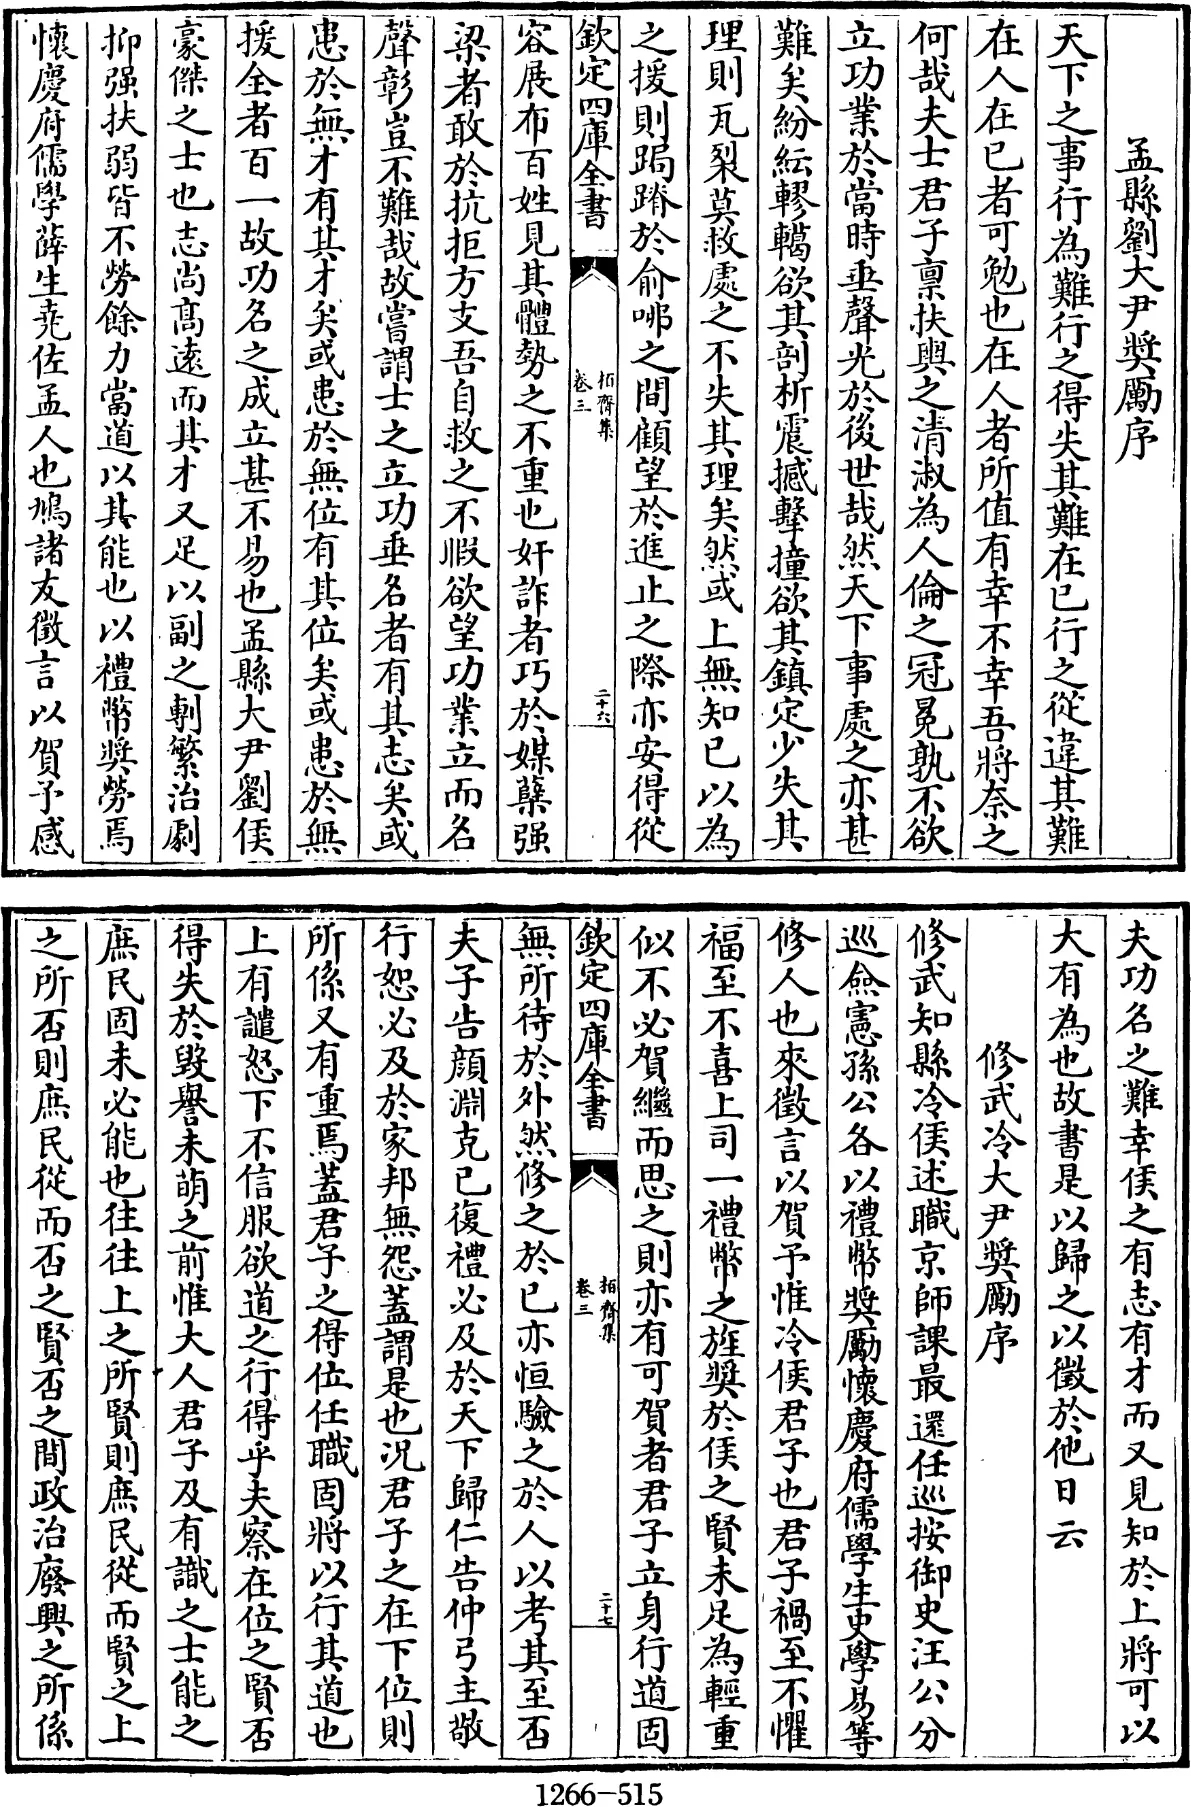 孟縣劉大尹奬勵序
天下之事行為難行之得失其難在已行之從違其難
在人在已者可勉也在人者所值有幸不幸吾將奈之
何哉夫士君子禀扶輿之清淑為人倫之冠冕孰不欲
立功業於當時垂聲光於後世哉然天下事處之亦甚
難矣紛紜轇轕欲其剖析震撼擊撞欲其鎮定少失其
理則瓦裂莫救處之不失其理矣然或上無知已以為
之援則跼蹐於俞咈之間顧望於進止之際亦安得從
欽定四庫全書
柘齊集
卷三
二十六
容展布百姓見其體勢之不重也奸詐者巧於媒櫱强
梁者敢於抗拒方支吾自救之不暇欲望功業立而名
聲彰豈不難哉故嘗謂士之立功垂名者有其志矣或
患於無才有其才矣或患於無位有其位矣或患於無
援全者百一故功名之成立甚不易也孟縣大尹劉侯
豪傑之士也志尚髙遠而其才又足以副之剸繁治劇
抑强扶弱皆不勞餘力當道以其能也以禮幣奬勞焉
懷慶府儒學薛生堯佐孟人也鳩諸友徵言以賀予感
夫功名之難幸侯之有志有才而又見知於上將可以
大有為也故書是以歸之以徵於他日云
修武冷大尹奬勵序
修武知縣冷侯述職京師課最還任巡按御史汪公分
巡僉憲孫公各以禮幣奬勵懷慶府儒學生史學易等
修人也來徵言以賀予惟冷侯君子也君子禍至不懼
福至不喜上司一禮幣之旌奬於侯之賢未足為輕重
似不必賀繼而思之則亦有可賀者君子立身行道固
欽定四庫全書
柘齊集
卷三
二十七
無所待於外然修之於已亦恒驗之於人以考其至否
夫子告顔淵克已復禮必及於天下歸仁告仲弓主敬
行恕必及於家邦無怨蓋謂是也况君子之在下位則
所係又有重焉蓋君子之得位任職固將以行其道也
上有譴怒下不信服欲道之行得乎夫察在位之賢否
得失於毁譽未萌之前惟大人君子及有識之士能之
庶民固未必能也往往上之所賢則庶民從而賢之上
之所否則庶民從而否之賢否之間政治廢興之所係
1266-515